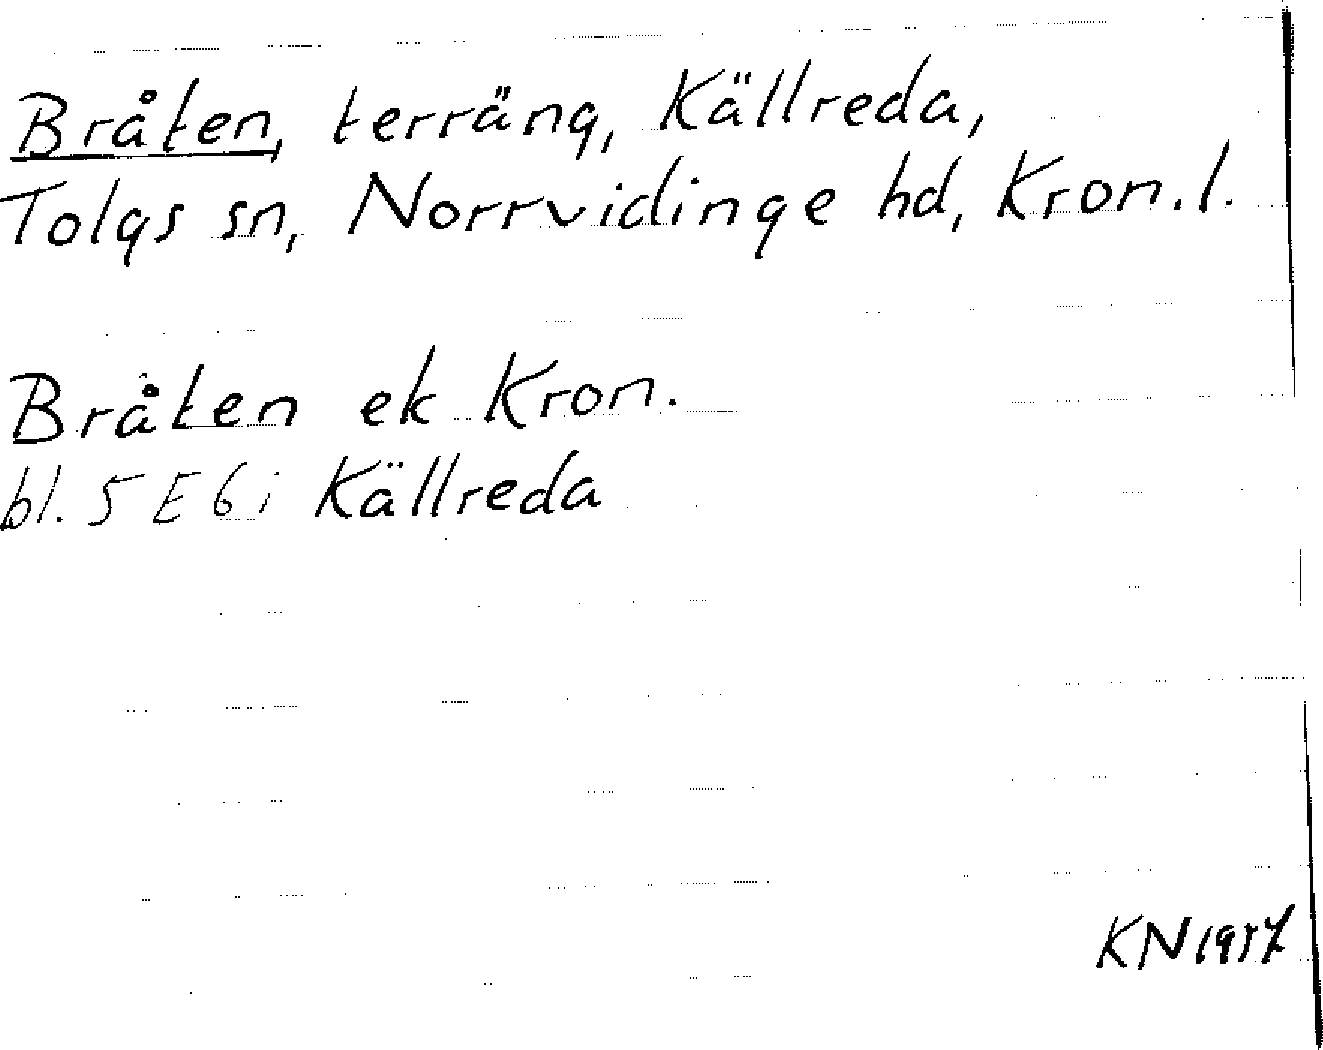 Bråten, terräng, Källreda,
Tolgs sn, Norrvidinge hd, Kron.l.
Bråten ek Kron.
bl. 5 E 6 i Källreda
KN 1957